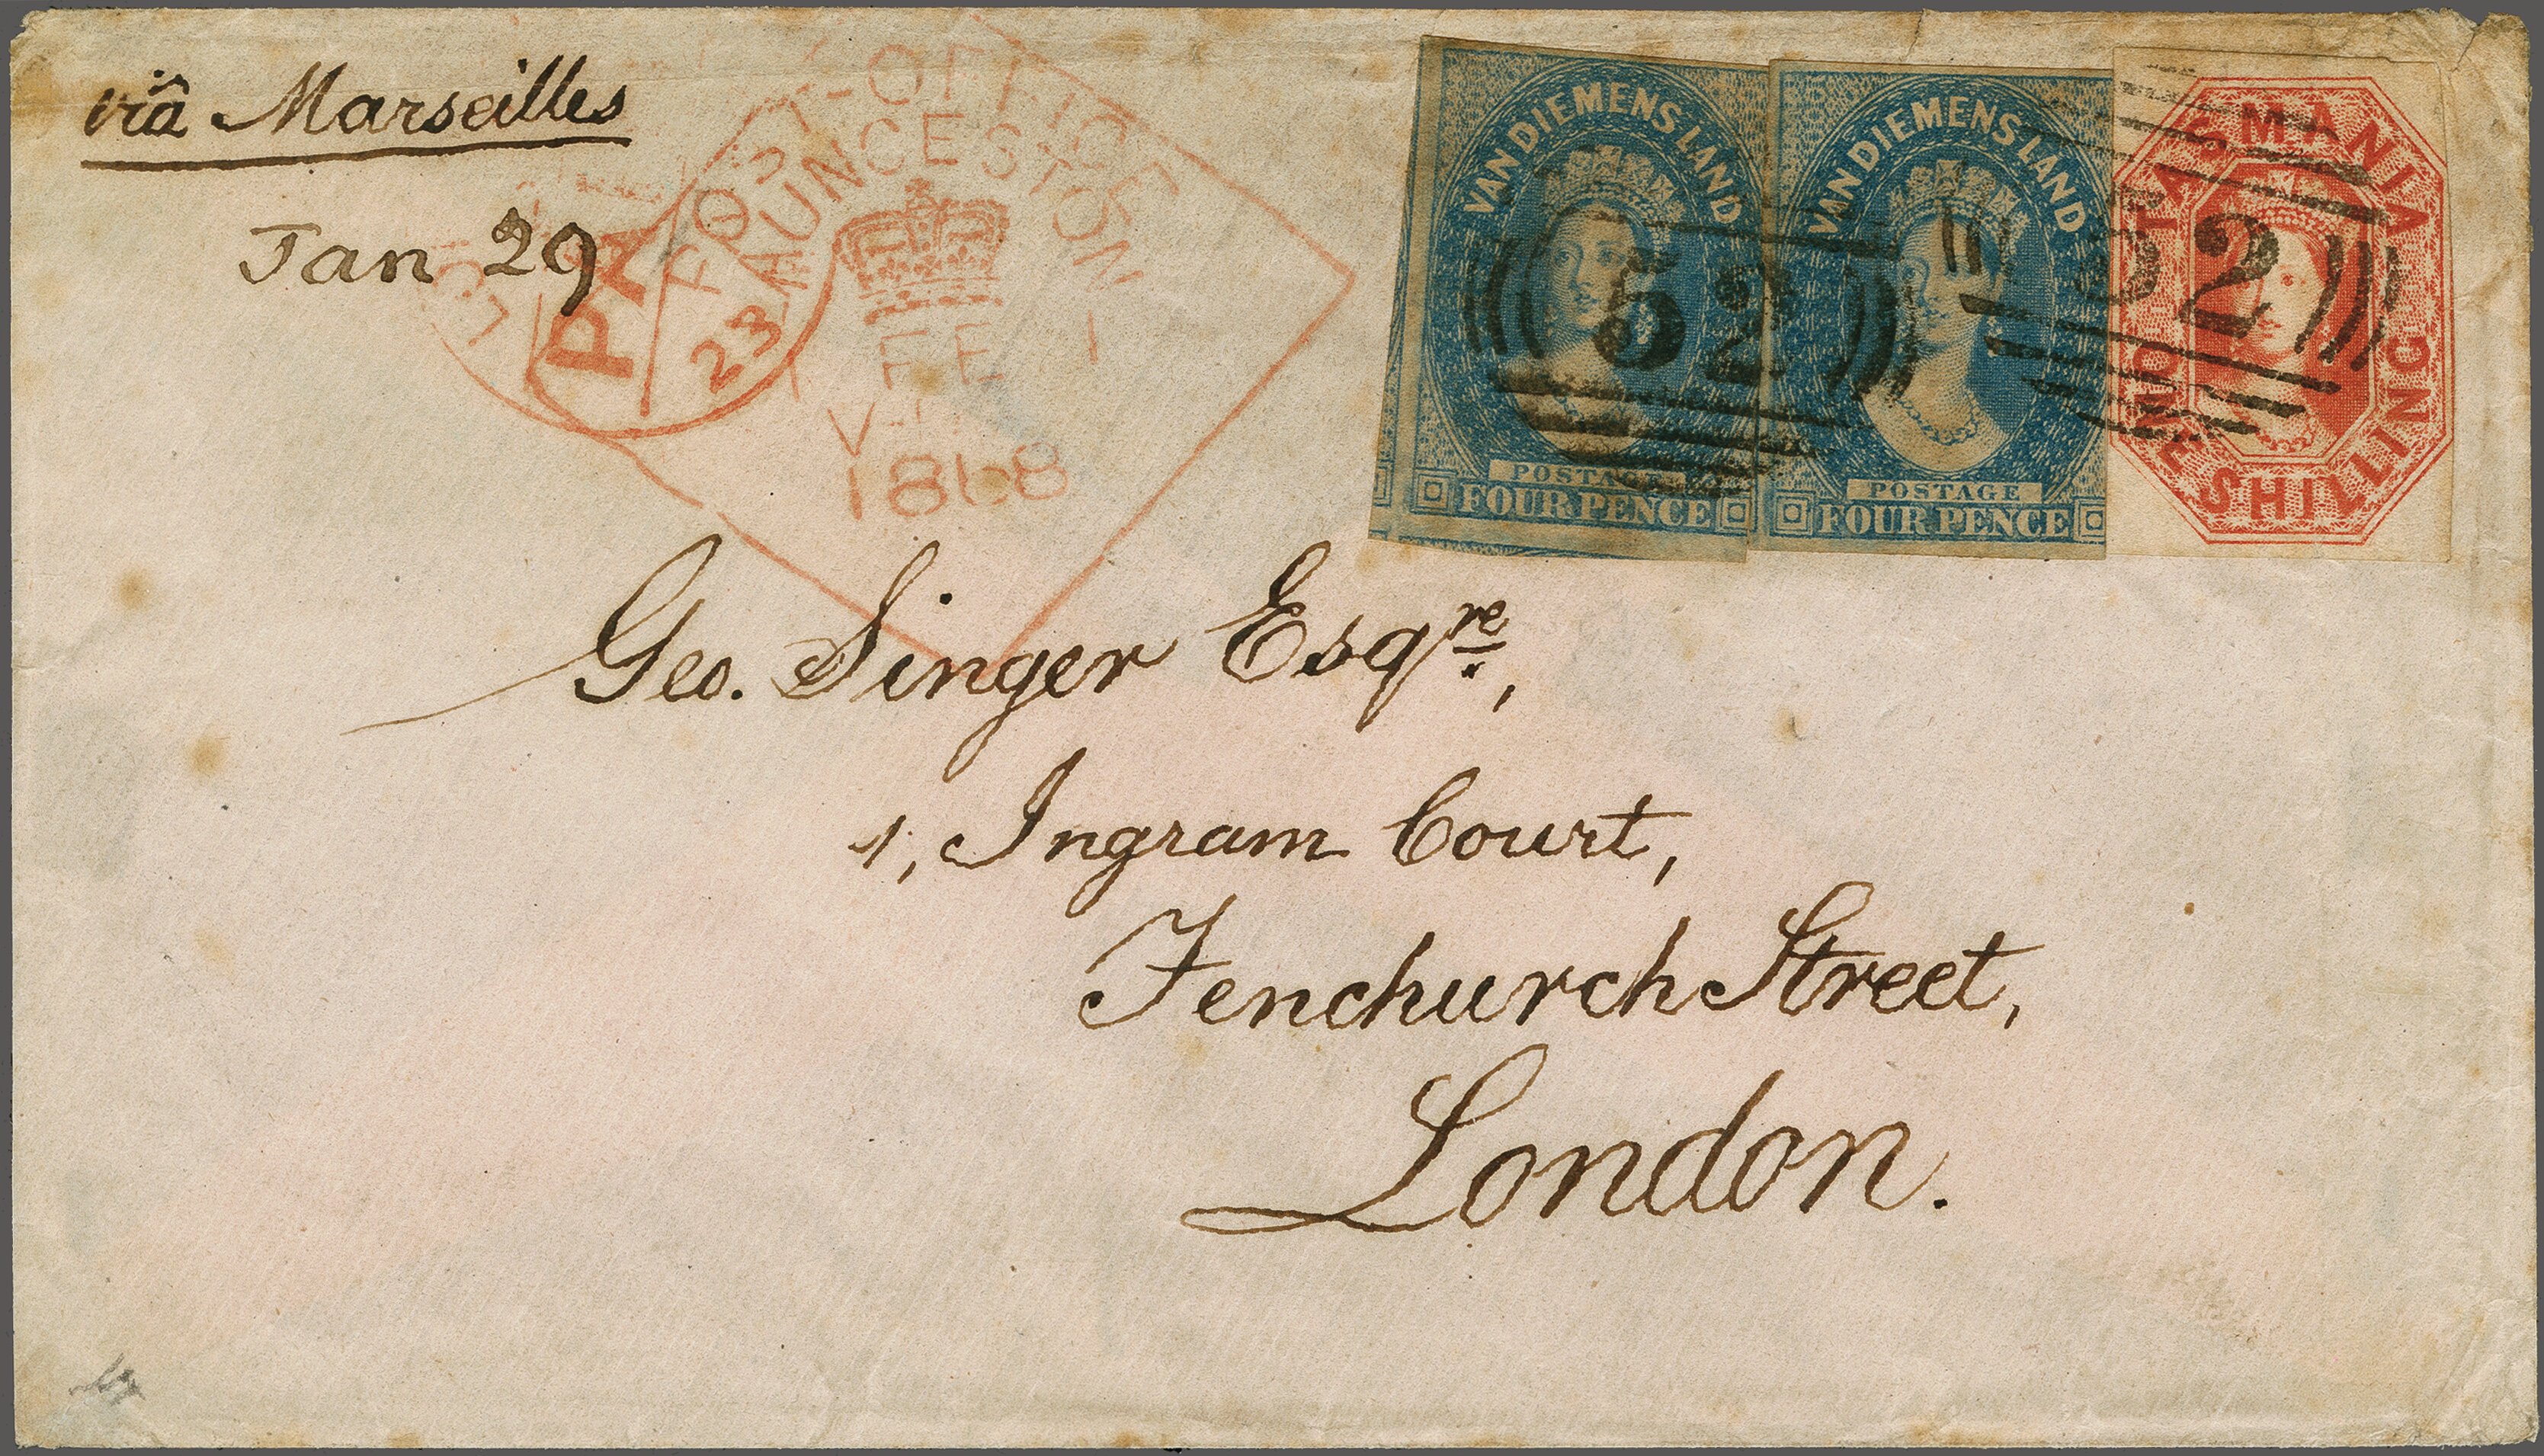 viâ Marseilles
Jan 29
POST-OFFICE
LAUNCESTON
FE 1
1868
PA
23
VAN DIEMENS LAND
POSTAGE
FOUR PENCE
VAN DIEMENS LAND
POSTAGE
FOUR PENCE
TASMANIA
ONE SHILLING
52
52
Geo. Singer Esqre,
1, Ingram Court,
Fenchurch Street,
London.